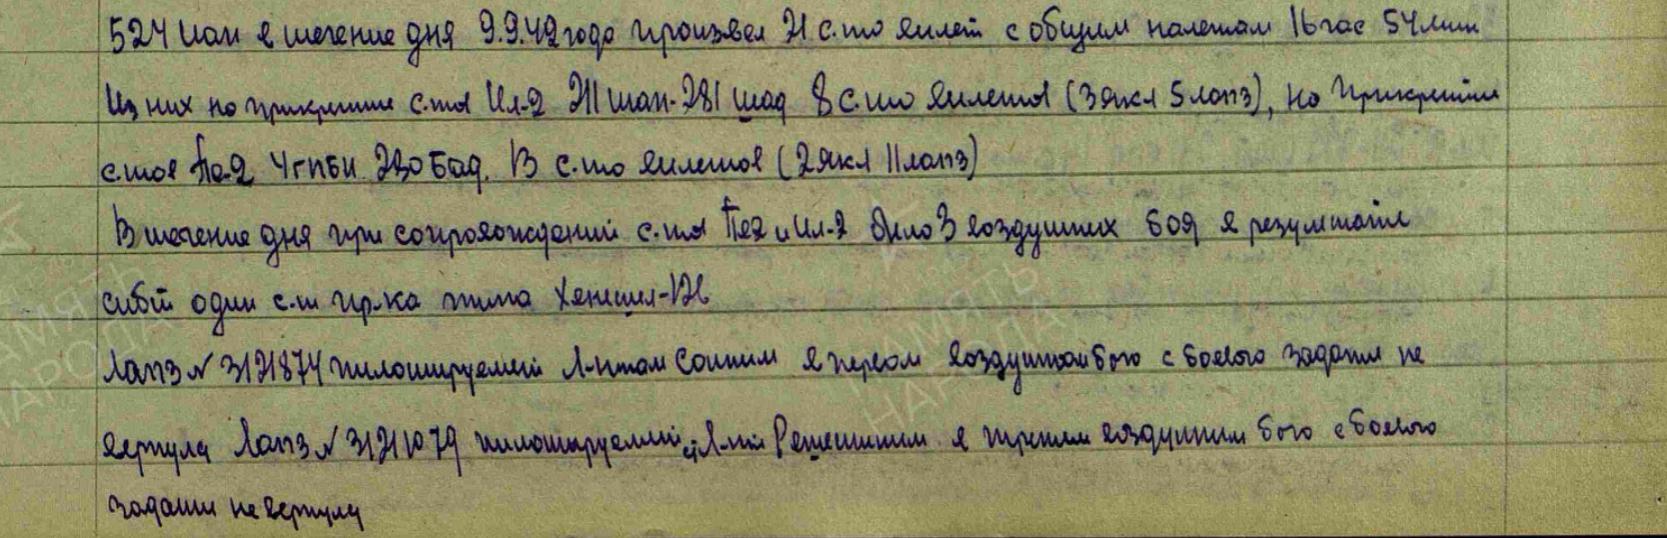 524 иап в течение дня 9.9.42 года произвел 21 с.то вылет с общим налетом 16 час 54 мин
Из них на прикрытие с.тов Ил-2 211 шап-281 шад 8 с.то вылетов (3 як1 5 лагг3), на прикрытие
с.тов Пе-2 4гпбп 280 бад. 13 с.то вылетов (2 як1 11 лагг3)
В течение дня при сопровождений с.тов Пе2 и Ил-2 было 3 воздушных боя в результате
сбит один с.т пр-ка типа Хеншель-126
Лагг3 № 3121874 пилотируемый Л-нтом в первом воздушном бою с боевого задания не
вернулся Лагг3 № 31211079 пилотируемый Л-том в третьем воздушном бою с боевого
задания не вернулся
ПАМЯТЬ НАРОДА
ПАМЯТЬ НАРОДА